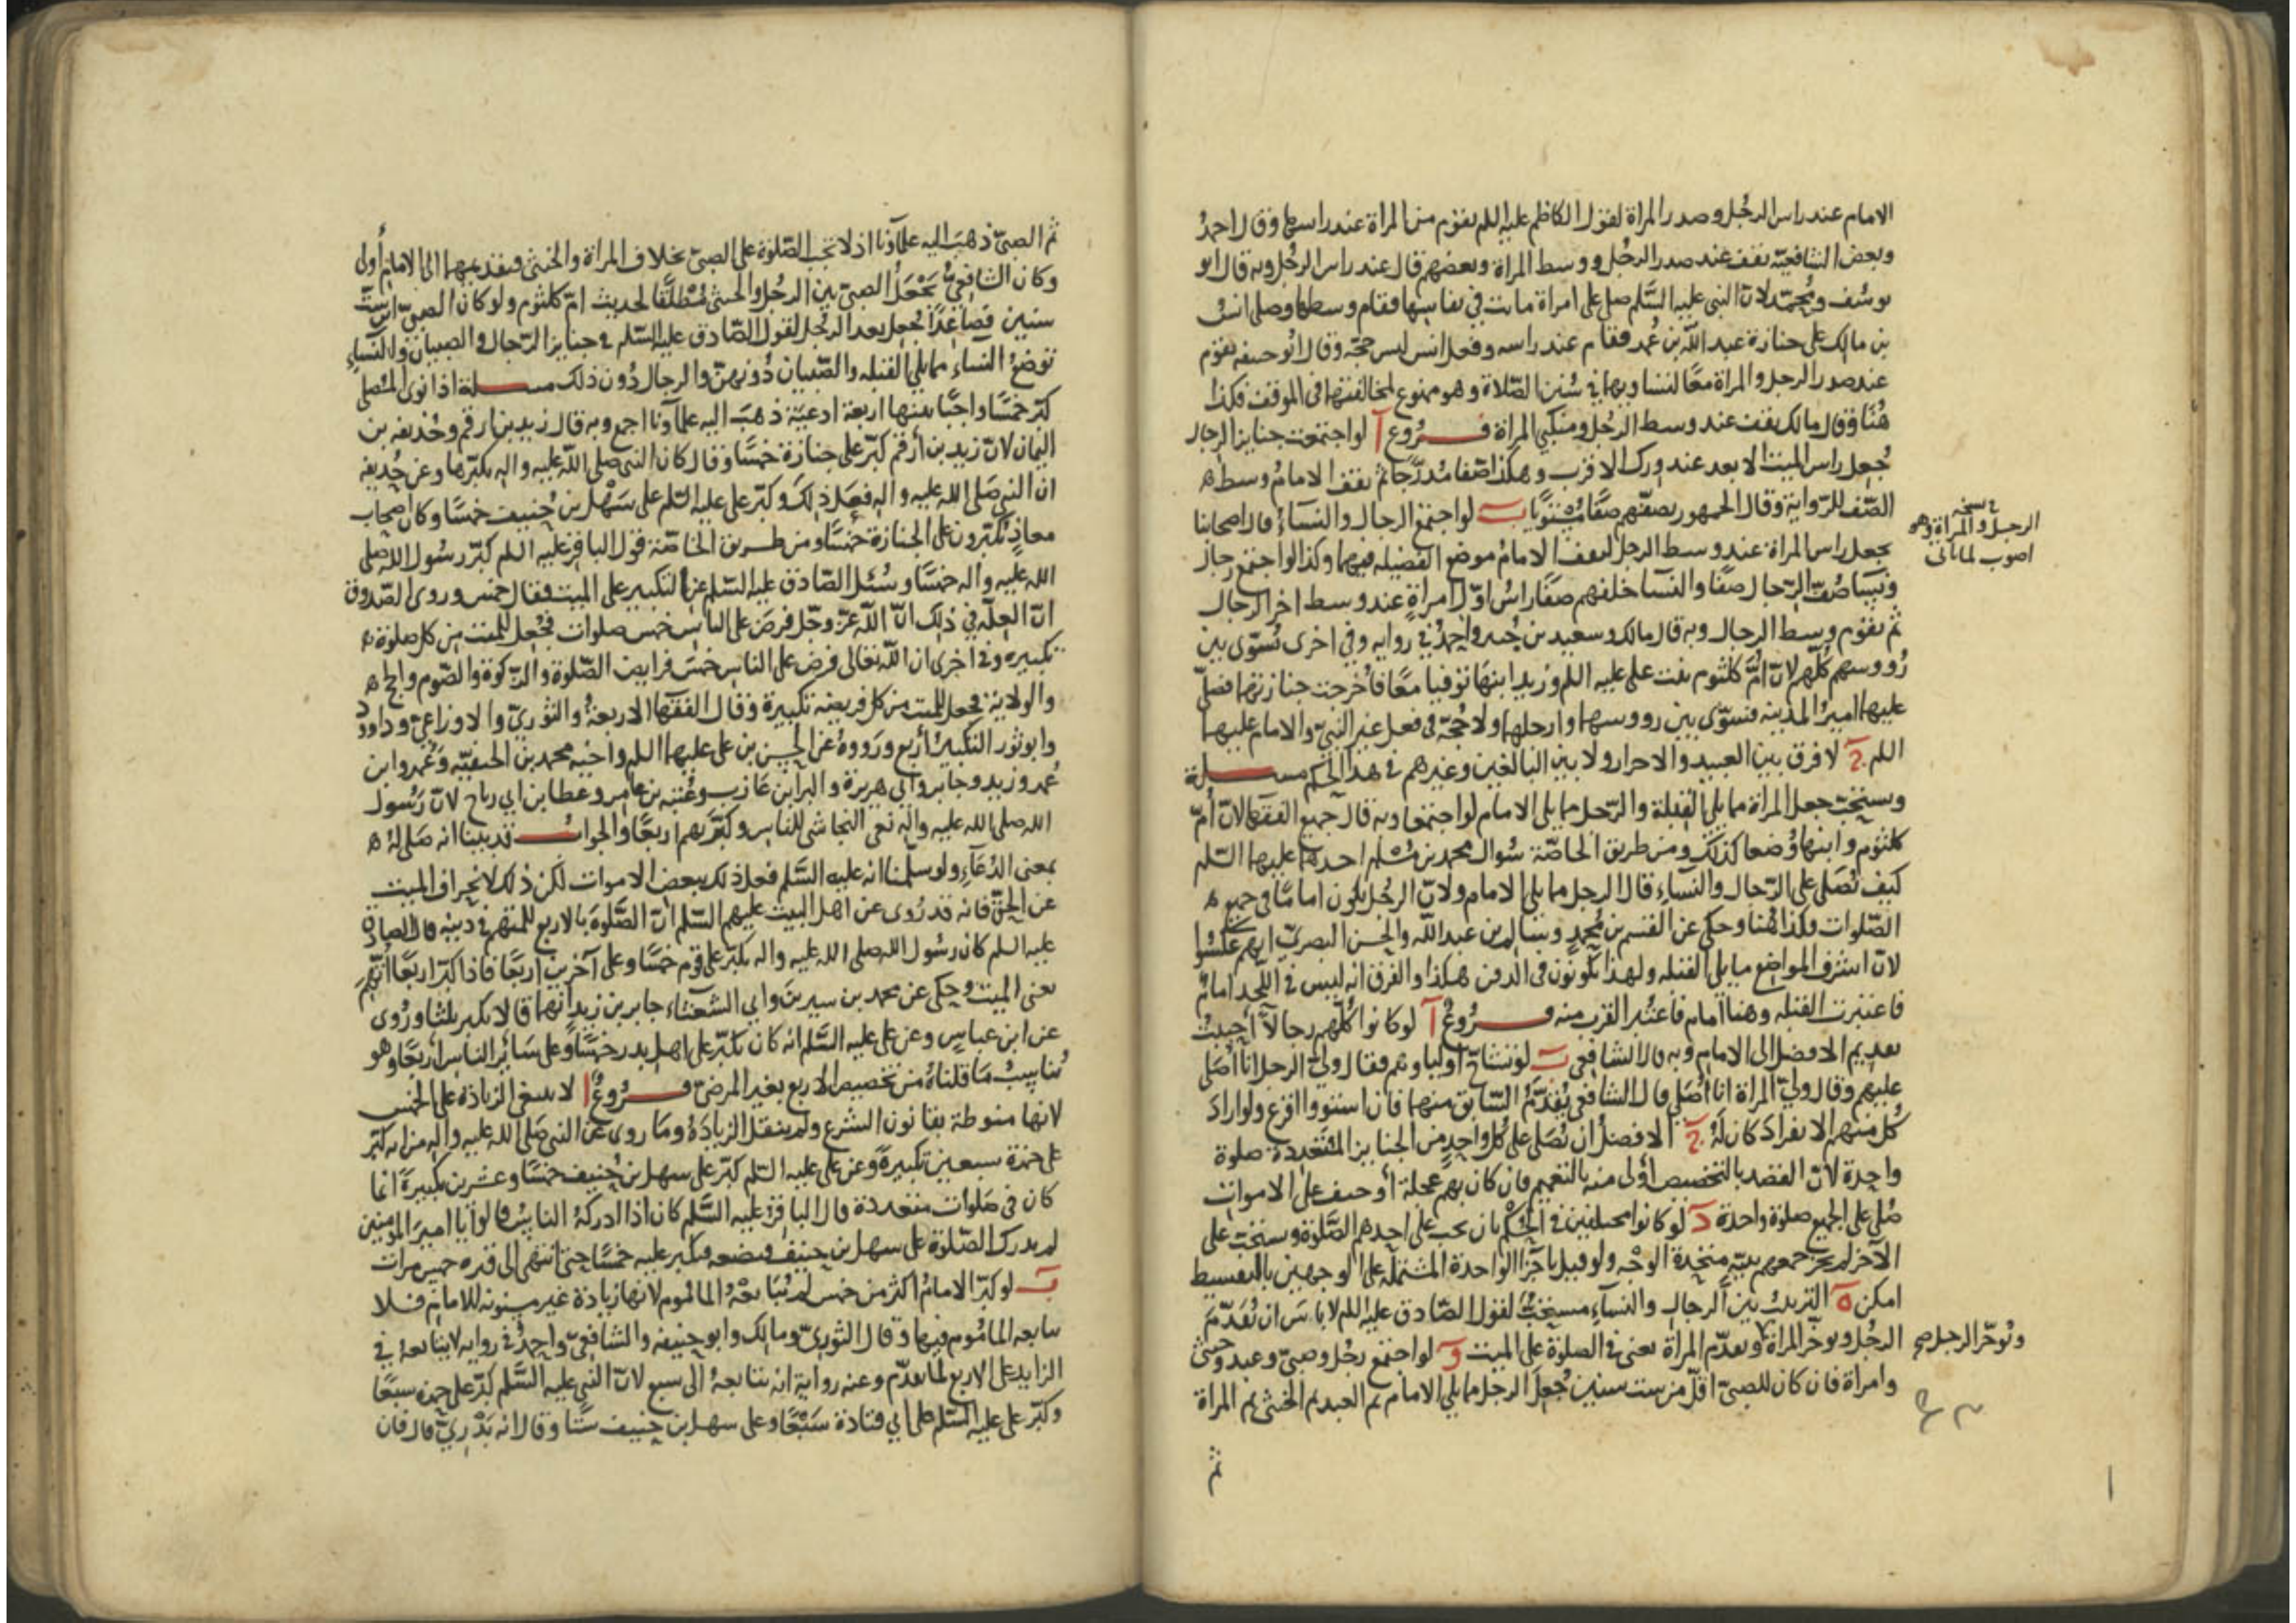 الامام عند راس الرجُل وصدر المراة لقول الكاظم عليه السلم يقوم من المراة عند راسها وقال احمدُ
وبعض الشافعيّة يقف عند صدر الرجُل ووسط المراة وبعضهم قال عند راس الرجُل وبه قال ابو
يوسُف ومُحمّد لانّ النبي عليه السَّلم صلى على امراة ماتت في نفاسها فقام وسطها وصلى انسُ
بن مالك على جنازة عبد اللّه بن عُمر فقام عند راسه وفعل انس ليس حجّة وقال ابو حنيفه يقوم
عند صدر الرجل والمراة معًا لتساويهما في سُنن الصّلاة وهو ممنوع لمخالفتها في الموقف فكذا
هُنا وقال مالك يقف عند وسط الرجُل ومنكبي المراة فـروع آ لو اجتمعت جنايز الرجال
جُعل راس الميت الابعد عند ورك الاقرب وهكذا صفا مُدرّجًا ثم يقف الامامُ وسط
الصّف للرّواية وقال الجمهور يصفّهم صفًّا مُسْتويًا ب لو اجتمع الرجال والنسآءُ قال اصحابنا
يجعل راس المراة عند وسط الرجل ليقف الامامُ موضع الفضيله فيهما وكذا لو اجتمع رجال
ونسآ صُفّ الرّجال صفًّا والنسآ خلفهم صفًّا راسُ اوّل امراةٍ عند وسط اخر الرجال
ثم يقوم وسط الرجال وبه قال مالك وسعيد بن جُبير واحمدُ في روايه وفي اخرى تُسوّى بين
رُووسهم كلّهم لانّ امّ كلثوم بنت علي عليه السلم وزيد ابنها توفيا معًا فاُخرجت جنازتهما فصلّى
عليهما اميرُ المدينه فسوّى بين رووسهما وارجلهما ولا حُجّة في فعل غير النبيّ والامام عليهما
السلم ج لا فرق بين العبيد والاحرار ولا بين البالغين وغيرهم في هذا الحكم مسـلة
ويستحبّ جعل المراة مما يلي القبلة والرّجل مما يلي الامام لو اجتمعا وبه قال جميع الفقهآ لانّ اُمّ
كلثوم وابنها وُضعا كذلك ومن طريق الخاصّة سُوال محمد بن مُسْلم احدهما عليهما السّلم
كيف تُصَلى على الرّجال والنسآءِ قال الرجل مما يلي الامام ولانّ الرجُل يكون اماما في جميع
الصّلوات فكذا هُنا وحكي عن القسم بن مُحمدٍ وسالم بن عبد اللّه والحسن البصريّ انهم عكسُوا
لانّ اشرف المواضع ما يلي القبله ولهذا يكونون في الدفن هكذا والفرق انه ليس في اللّحد امامٌ
فاعتبرت القبله وهنا امام فاعتُبر القرب منه فـروعٌ آ لو كانوا كُلّهم رجالاً اُحببتُ
تقديم الافضل الى الامام وبه قال الشافعي ب لو تشاحّ اولياوهم فقال وليّ الرجل انا اُصَلي
عليهم وقال وليّ المراة انا اُصَلي قال الشافعي يُقدّمُ السّابق منهما فان استووا اقرع ولو اراد
كُل منهم الانفرادَ كان لَهُ ج الافضلُ ان تُصَلى على كُل واحدٍ من الجنايز المتعددة صلوة
واحدة لانّ القصد بالتخصيص اَولى منه بالتعميم فان كان بهم عجلة اَو خيف على الاموات
صُلي على الجميع صلوة واحدة د لو كانوا مختلفين في الحُكْم بان يجب على احدهم الصَّلوة ويستحبّ على
الآخر لم يجز جمعهم بنيّة متحّدة الوجْه ولو قيل باجزآ الواحدة المشتملة على الوجهين بالتقسيط
امكن ه الترتيب بين الرجال والنسآءِ مستحبّ لقول الصّادق عليه السلم لا باسَ ان تُقدّمَ
الرجُل وتوخّر المراة وتقدّم المراة يعني في الصلوة على الميت و لو اجتمع رجُل وصبيّ وعبد وخنثى
وامراة فان كان للصبيّ اقلّ من ست سنين جُعلَ الرجل مما يلي الامام ثم العبد ثم الخنثى ثم المراة
ثم
نسخه
الرجل والمراة وهو
اصوب لما ياتي
وتُوخّر الرجل صح
ثم الصبيّ ذهبَ اليه علمآونا اذ لا تجب الصّلوة على الصبيّ بخلاف المراة والخنثى فتقديمهما الى الامام أولى
وكان الشافعيّ يَجْعَلُ الصبيّ بين الرجُل والخنثى مُطْلقًا لحديث امّ كلثوم ولو كان الصبيّ ابن ستّ
سنين فصاعِدًا جُعِل بعد الرجُل لقول الصّادق عليه السّلم في جنايز الرّجال والصبيان والنسآءِ
توضعُ النساءِ مما يلي القبله والصّبيان دُونهنّ والرجال دُون ذلك مسـلة اذا نوى المُصلي
كبّر خمسًا واجبًا بينها اربعة ادعيَة ذهبَ اليه علمآونا اجمع وبه قال زيد بن ارقم وحُذيفه بن
اليمان لانّ زيد بن أرقم كبّر على جنازة خمسًا وقال كان النبي صلى اللّه عليه واله يكبّرها وعن حُذيفه
ان النبي صَلى الله عليه واله فعَل ذلِكَ وكبّر علي عليه السّلم على سَهْل بن حُنيف خمسًا وكان اصحاب
معاذٍ يُكبّرون على الجنازة خمسًا ومن طريق الخاصّة قول الباقر عليه السلم كبّر رسُول الله صلى
الله عليه واله خمسًا وسُئل الصّادق عليه السّلم عن التكبير على الميت فقال خمس وروى الصّدوق
انّ العِلّة في ذلك انّ اللّه عزّ وجلّ فرضَ على الناس خمس صلوات فجُعل للميت من كل صلوة
تكبيره وفي اخرى ان اللّه تعالى فرض على الناس خمسَ فرايض الصّلوة والزّكوة والصّوم والحج
والولاية فجعل للميت من كل فريضه تكبيرة وقال الفقهآ الاربعة والثوريّ والاوزاعيّ وداود
وابو ثور التكبيرُ أربع ورووهُ عن الحسن بن علي عليهما السلم واخيه محمد بن الحنفيّه وعُمر وابن
عُمر وزيد وجابر وابي هريرة والبرآ بن عَازب وعُتبه بن عَامِر وعطا بن ابي رباح لانّ رَسُول
الله صلى الله عليه واله نعى النجاشي للناس وكبّر بهم اربعًا والجواب قد بينا انه صَلى لهُ
بمعنى الدُعآءِ ولو سلّمنا انه عليه السَّلم فعل ذلك ببعض الاموات لكن ذلك لانحراف الميت
عن الحقّ فانه قد رُوى عن اهل البيت عليهم السّلم انّ الصَّلوة بالاربع للمتهم في دينه قال الصادق
عليه السلم كان رسُول الله صلى الله عليه واله يكبّر على قوم خمسًا وعلى آخرين اربعًا فاذا كبّر اربعًا اتُّهِمَ
يعنى الميت وحكي عن محمد بن سيرينَ وابي الشعثاءِ جابر بن زيدٍ انهما قالا يكبر ثلثا ورُوى
عن ابن عباسٍ وعن علي عليه السَّلم انه كان يكبّر على اهل بدر خمسًا وعلى سَائر الناس اربعًا وهو
يُناسِبُ مَا قلناهُ من تخصيص الاربع بغير المرضيّ فـروعٌ ا لا ينبغي الزيادة على الخمس
لانها منوطة بقانون الشرع ولم ينقل الزيادَةُ وما روى عن النبي صَلى الله عليه واله من انه كبّر
على حمزة سبعين تكبيرةً وعن علي عليه السّلم كبّر على سهل بن حُنيف خمسًا وعشرين تكبيرةً انما
كان في صَلوات متعددة قال الباقر عليه السَّلم كان اذا ادركهُ الناسُ قالوا يا اميرَ المومنين
لم يدرك الصّلوة على سهل بن حنيف فيضعه فيكبر عليه خمسًا حتى انتهى الى قبره خمس مرات
ب لو كبّر الامامُ اكثر من خمس لم يُتابعْهُ المامُوم لانها زيادة غير مسنونه للامام فلا
يتابعه المامُوم فيها وقال الثوريّ ومالك وابو حنيفه والشافعي واحمدُ في روايه لا يتابعهُ في
الزايد على الاربع لما تقدّم وعنه رواية انه يتابعهُ الى سبع لانّ النبي عليه السَّلم كبّر على حمزه سبعًا
وكبّر علي عليه السَّلم على ابي قتادة سَبْعًا وعلى سهل بن حنيف ستّا وقال انه بَدْريّ قال فان